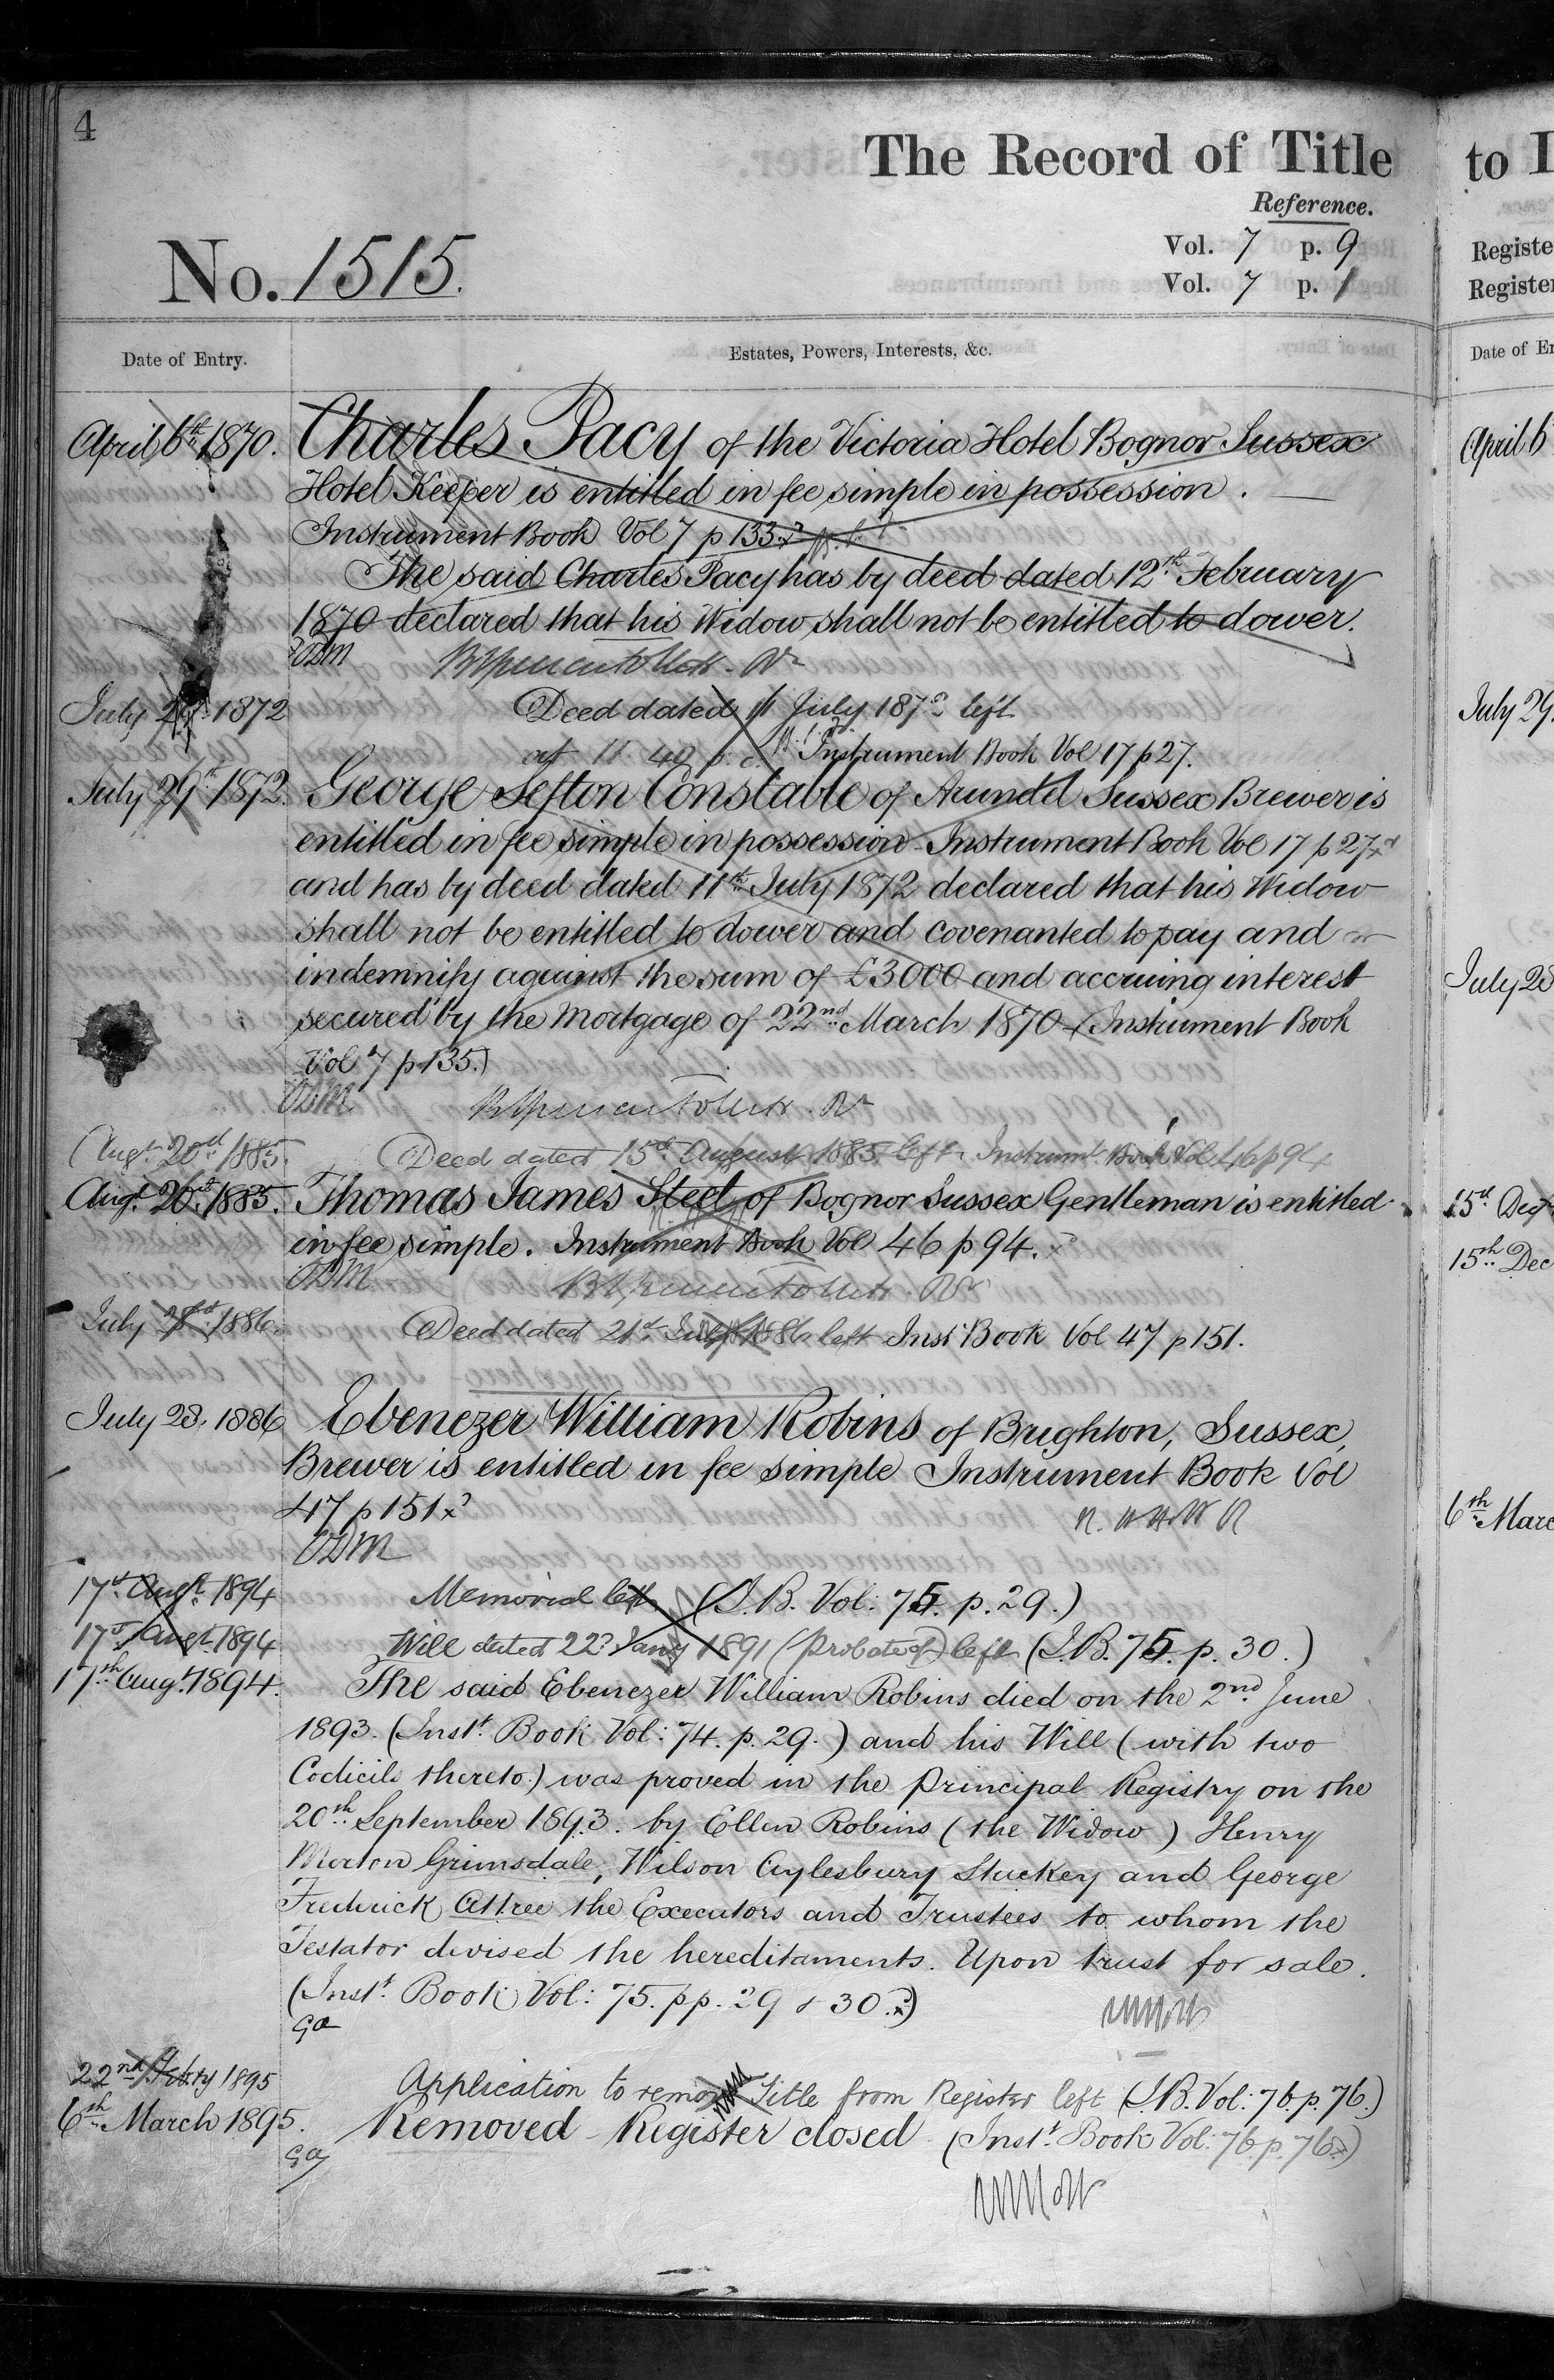 4
The Record of Title
Reference.
No. 1515.
Vol. 7 p. 9
Vol. 7 p. 1
Date of Entry.
Estates, Powers, Interests, &c.
April 6th 1870. Charles Pacy of the Victoria Hotel Bognor Sussex
Hotel Keeper is entitled in fee simple in possession.
Instrument Book Vol 7 p 133
The said Charles Pacy has by deed dated 12th February
1870 declared that his Widow shall not be entitled to dower.
ODM
July 1872 Deed dated 11 July 1872 left
at 11.40 Instrument Book Vol 17 p 27.
July 29th 1872. George Sefton Constable of Arundel Sussex Brewer is
entitled in fee simple in possession Instrument Book Vol 17 p 27
and has by deed dated 11th July 1872 declared that his Widow
shall not be entitled to dower and covenanted to pay and
indemnify against the sum of £3000 and accruing interest
secured by the Mortgage of 22nd March 1870 (Instrument Book
Vol 7 p 135.)
ODM
Augt. 20th 1885. Deed dated 15th August 1885 left Instrumt. Book Vol 46 p 94
Augt. 20th 1885. Thomas James Steel of Bognor Sussex Gentleman is entitled
in fee simple. Instrument Book Vol 46 p 94.
ODM
July 1886. Deed dated 21st July 1886 left Inst Book Vol 47 p 151.
July 28. 1886 Ebenezer William Robins of Brighton, Sussex,
Brewer is entitled in fee simple Instrument Book Vol
47 p 151
ODM
17th Augt. 1894 Memorial left (I.B. Vol: 75. p. 29.)
17th Augt. 1894 Will dated 22d Jany 1891 (Probate of) left (I.B. 75. p. 30.)
17th Augt. 1894. The said Ebenezer William Robins died on the 2nd June
1893. (Inst. Book Vol: 74. p. 29.) and his Will (with two
Codicils thereto.) was proved in the Principal Registry on the
20th September 1893. by Ellen Robins (the Widow) Henry
Morton Grimsdale, Wilson Aylesbury Stuckey and George
Frederick Attree the Executors and Trustees to whom the
Testator devised the hereditaments. Upon trust for sale.
(Inst. Book Vol: 75. pp. 29 & 30.)
Ga
22nd Febry 1895 Application to remove Title from Register left (I.B. Vol: 76. p. 76.)
6th March 1895. Removed Register closed (Inst. Book Vol: 76 p. 76)
Ga
to
Registe
Register
Date of
April 6
July 29.
July 28
15th Dec
15th Dec
6th Marc